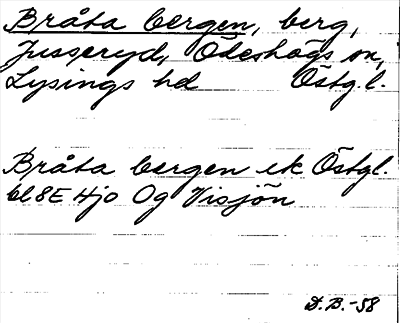 Bråta bergen, berg,
Jusseryd, Ödeshögs sn,
Lysings hd Östg.l.
Bråta bergen ek Östgl.
bl 8E Hjo Og Visjön
D.B.-58